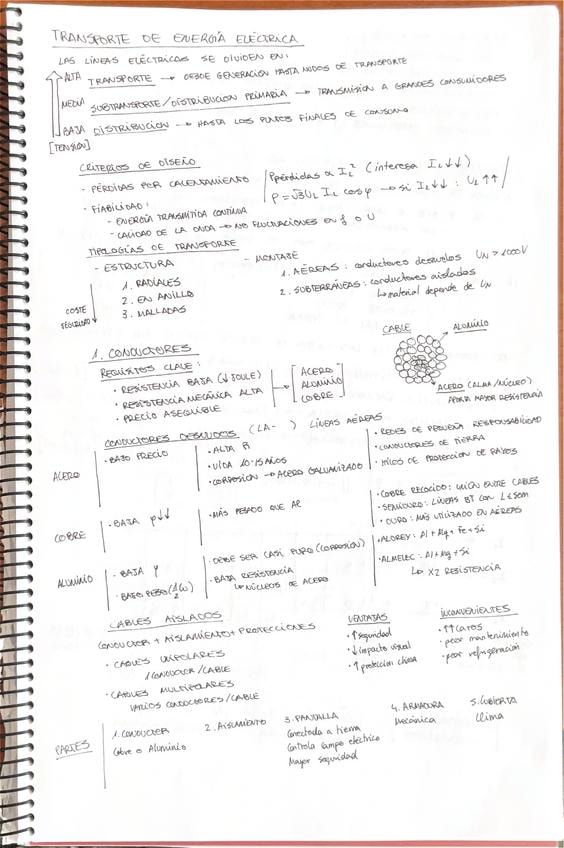 TRANSPORTE DE ENERGÍA ELÉCTRICA
LAS LÍNEAS ELÉCTRICAS SE DIVIDEN EN:
ALTA TRANSPORTE → DESDE GENERACION HASTA NUDOS DE TRANSPORTE
MEDIA SUBTRANSPORTE/DISTRIBUCION PRIMARIA → TRANSMISIÓN A GRANDES CONSUMIDORES
BAJA DISTRIBUCION → HASTA LOS PUNTOS FINALES DE CONSUMO
[TENSIÓN]
CRITERIOS DE DISEÑO
- PÉRDIDAS POR CALENTAMIENTO
Ppérdidas α I_L² (interesa I_L↓↓)
P = √3 U_L I_L cos φ → si I_L↓↓ : U_L↑↑
- FIABILIDAD:
- ENERGÍA TRANSMITIDA CONTINUA
- CALIDAD DE LA ONDA → NO FLUCTUACIONES EN f O U
TIPOLOGÍAS DE TRANSPORTE
- ESTRUCTURA
1. RADIALES
2. EN ANILLO
3. MALLADAS
COSTE
SEGURIDAD
- MONTAJE
1. AÉREAS: conductores desnudos U_N > 1000V
2. SUBTERRÁNEAS: conductores aislados
↳ material depende de U_N
CABLE
ALUMINIO
ACERO (ALMA/NÚCLEO)
APORTA MAYOR RESISTENCIA
1. CONDUCTORES
REQUISITOS CLAVE:
• RESISTENCIA BAJA (↓ JOULE)
• RESISTENCIA MECÁNICA ALTA
• PRECIO ASEQUIBLE
ACERO
ALUMINIO
COBRE
CONDUCTORES DESNUDOS (LA- ) LÍNEAS AÉREAS
ACERO
• BAJO PRECIO
• ALTA
• VIDA 10-15 AÑOS
• CORROSIÓN → ACERO GALVANIZADO
• REDES DE PEQUEÑA RESPONSABILIDAD
• CONDUCTORES DE TIERRA
• HILOS DE PROTECCION DE RAYOS
COBRE
• BAJA ρ↓↓
• MÁS PESADO QUE Al
• COBRE RECOCIDO: UNIÓN ENTRE CABLES
• SEMIDURO: LÍNEAS BT CON L<50m
• DURO: MÁS UTILIZADO EN AÉREAS
ALUMINIO
• BAJA ρ
• BAJO PESO (½ Cu)
• DEBE SER CASI PURO (CORROSIÓN)
• BAJA RESISTENCIA
↳ NÚCLEOS DE ACERO
• ALDREY: Al + Mg + Fe + Si
• ALMELEC: Al + Mg + Si
↳ X2 RESISTENCIA
CABLES AISLADOS
CONDUCTOR + AISLAMIENTO + PROTECCIONES
• CABLES UNIPOLARES
1 CONDUCTOR/CABLE
• CABLES MULTIPOLARES
VARIOS CONDUCTORES/CABLE
VENTAJAS
• ↑ seguridad
• ↓ impacto visual
• ↑ proteccion clima
INCONVENIENTES
• ↑↑ caros
• peor mantenimiento
• peor refrigeración
PARTES
1. CONDUCTOR
Cobre o Aluminio
2. AISLAMIENTO
3. PANTALLA
Conectada a tierra
Controla campo eléctrico
Mayor seguridad
4. ARMADURA
Mecánica
5. CUBIERTA
Clima